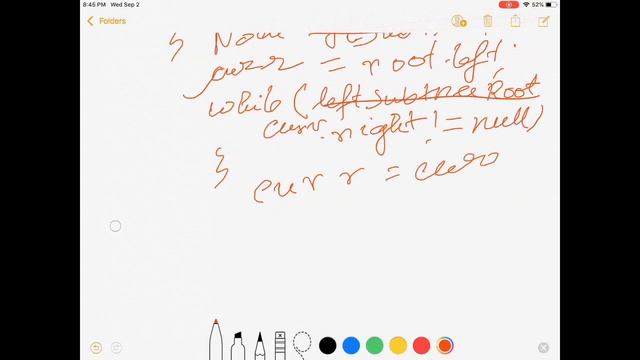 8:45 PM Wed Sep 2
52%
Folders
} Node
curr = root.left.
while (left subtree Root
curr.right != null)
}
curr = curr